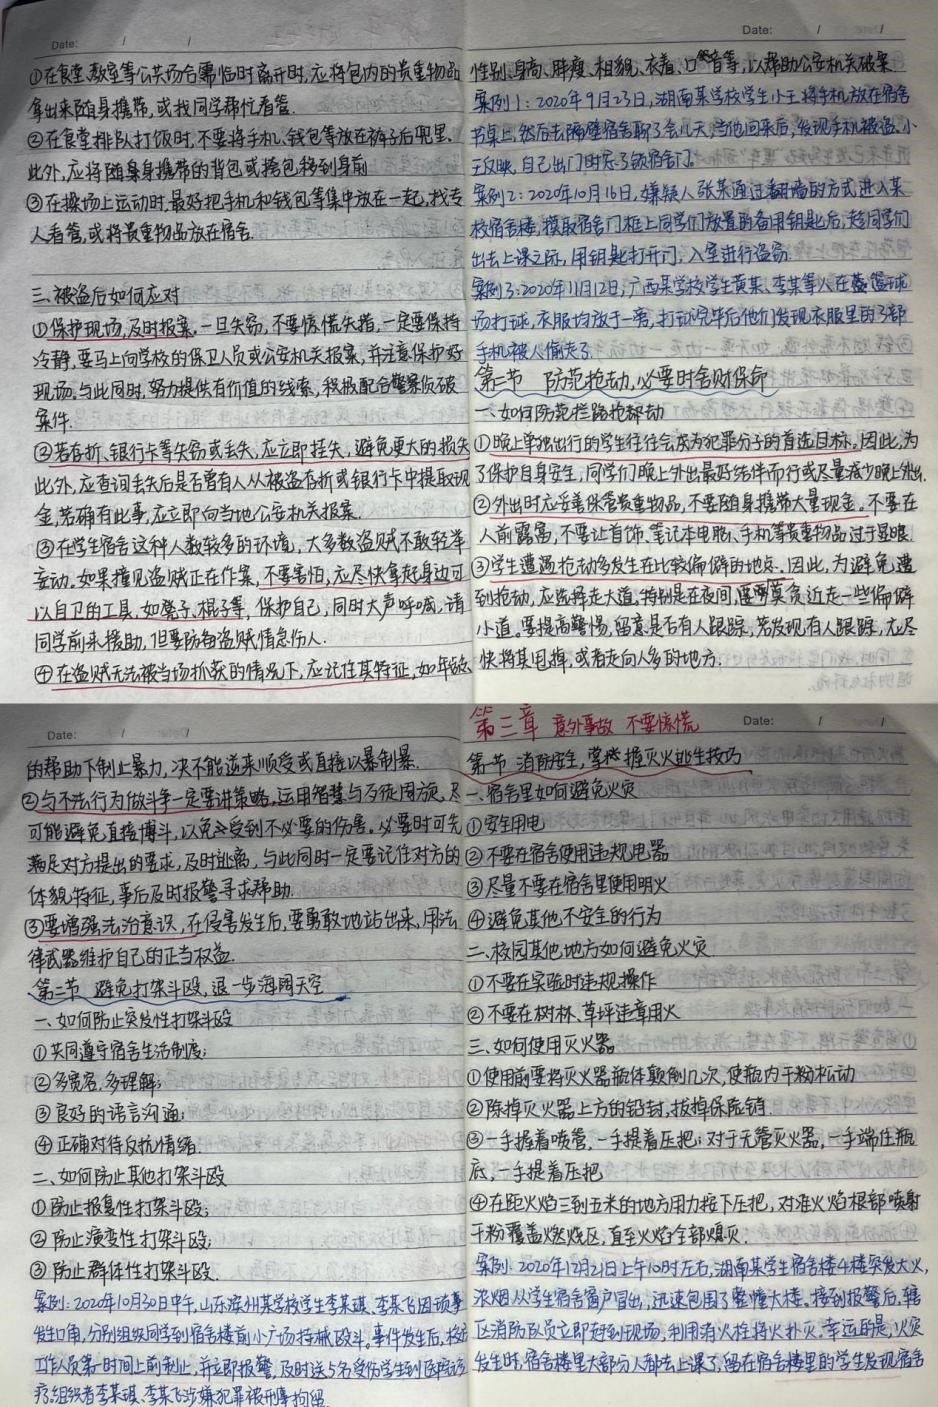 Date: / /
①在食堂、教室等公共场合需临时离开时,应将包内的贵重物品
拿出来随身携带,或找同学帮忙看管.
②在食堂排队打饭时,不要将手机、钱包等放在裤子后兜里,
此外,应将随身携带的背包或挎包移到身前
③在操场上运动时,最好把手机和钱包等集中放在一起,找专
人看管,或将贵重物品放在宿舍.
三、被盗后如何应对
①保护现场,及时报案,一旦失窃,不要惊慌失措,一定要保持
冷静,要马上向学校的保卫人员或公安机关报案,并注意保护好
现场。与此同时,努力提供有价值的线索,积极配合警察侦破
案件.
②若存折、银行卡等失窃或丢失,应立即挂失,避免更大的损失
此外,应查询丢失后是否曾有人从被盗存折或银行卡中提取现
金,若确有此事,应立即向当地公安机关报案.
③在学生宿舍这种人数较多的环境,大多数盗贼不敢轻举
妄动。如果撞见盗贼正在作案,不要害怕,应尽快拿起身边可
以自卫的工具,如凳子、棍子等,保护自己,同时大声呼喊,请
同学前来援助,但要防备盗贼情急伤人.
④在盗贼无法被当场抓获的情况下,应记住其特征,如年龄、
Date: / /
性别、身高、胖瘦、相貌、衣着、口音等,以帮助公安机关破案
案例1:2020年9月23日,湖南某学校学生小王将手机放在宿舍
书桌上,然后去隔壁宿舍聊了会儿天,当他回来后,发现手机被盗.小
王反映,自己出门时忘了锁宿舍门。
案例2:2020年10月16日,嫌疑人张某通过翻墙的方式进入某
校宿舍楼,摸取宿舍门框上同学们放置的备用钥匙后,趁同学们
出去上课之际,用钥匙打开门,入室进行盗窃.
案例3:2020年11月12日,广西某学校学生黄某、李某等人在篮球
场打球,衣服均放于一旁,打球完毕后他们发现衣服里的3部
手机被人偷走了.
第二节 防范抢劫,必要时舍财保命
一、如何防范拦路抢劫
①晚上单独出行的学生往往会成为犯罪分子的首选目标,因此,为
了保护自身安全,同学们晚上外出最好结伴而行或尽量减少晚上外出.
②外出时应妥善保管贵重物品,不要随身携带大量现金。不要在
人前露富,不要让首饰、笔记本电脑、手机等贵重物品过于显眼.
③学生遭遇抢劫多发生在比较偏僻的地点.因此,为避免遭
到抢劫,应选择走大道。特别是在夜间,莫贪近走一些偏僻
小道。要提高警惕,留意是否有人跟踪,若发现有人跟踪,应尽
快将其甩掉,或者走向人多的地方.
Date: / /
的帮助下制止暴力,决不能逆来顺受或直接以暴制暴.
②与不法行为做斗争一定要讲策略,运用智慧与歹徒周旋,尽
可能避免直接搏斗,以免受到不必要的伤害。必要时可先
满足对方提出的要求,及时逃离,与此同时一定要记住对方的
体貌特征,事后及时报警寻求帮助.
③要增强法治意识,在侵害发生后,要勇敢地站出来,用法
律武器维护自己的正当权益.
第二节 避免打架斗殴,退一步海阔天空
一、如何防止突发性打架斗殴
①共同遵守宿舍生活制度;
②多宽容,多理解;
③良好的语言沟通;
④正确对待反抗情绪.
二、如何防止其他打架斗殴
①防止报复性打架斗殴;
②防止演变性打架斗殴;
③防止群体性打架斗殴.
案例:2020年10月30日中午,山东滨州某学校学生李某琪、李某飞因琐事
发生口角,分别组织同学到宿舍楼前小广场持械殴斗.事件发生后,校方
工作人员第一时间上前制止,并立即报警,及时送5名受伤学生到医院治
疗.组织者李某琪、李某飞涉嫌犯罪被刑事拘留.
第三章 意外事故 不要惊慌
Date: / /
第一节 消防安全,掌握灭火逃生技巧
一、宿舍里如何避免火灾
①安全用电
②不要在宿舍使用违规电器
③尽量不要在宿舍里使用明火
④避免其他不安全的行为
二、校园其他地方如何避免火灾.
①不要在实验时违规操作
②不要在树林、草坪违章用火
三、如何使用灭火器
①使用前要将灭火器瓶体颠倒几次,使瓶内干粉松动
②除掉灭火器上方的铅封,拔掉保险销.
③一手握着喷管,一手提着压把;对于无管灭火器,一手端住瓶
底,一手提着压把
④在距火焰三到五米的地方用力按下压把,对准火焰根部喷射
干粉覆盖燃烧区,直至火焰全部熄灭.
案例:2020年12月21日上午10时左右,湖南某学生宿舍楼4楼突发大火,
浓烟从学生宿舍窗户冒出,迅速包围了整幢大楼。接到报警后,辖
区消防队员立即赶到现场,利用消火栓将火扑灭.幸运的是,火灾
发生时,宿舍楼里大部分人都去上课了,留在宿舍楼里的学生发现宿舍